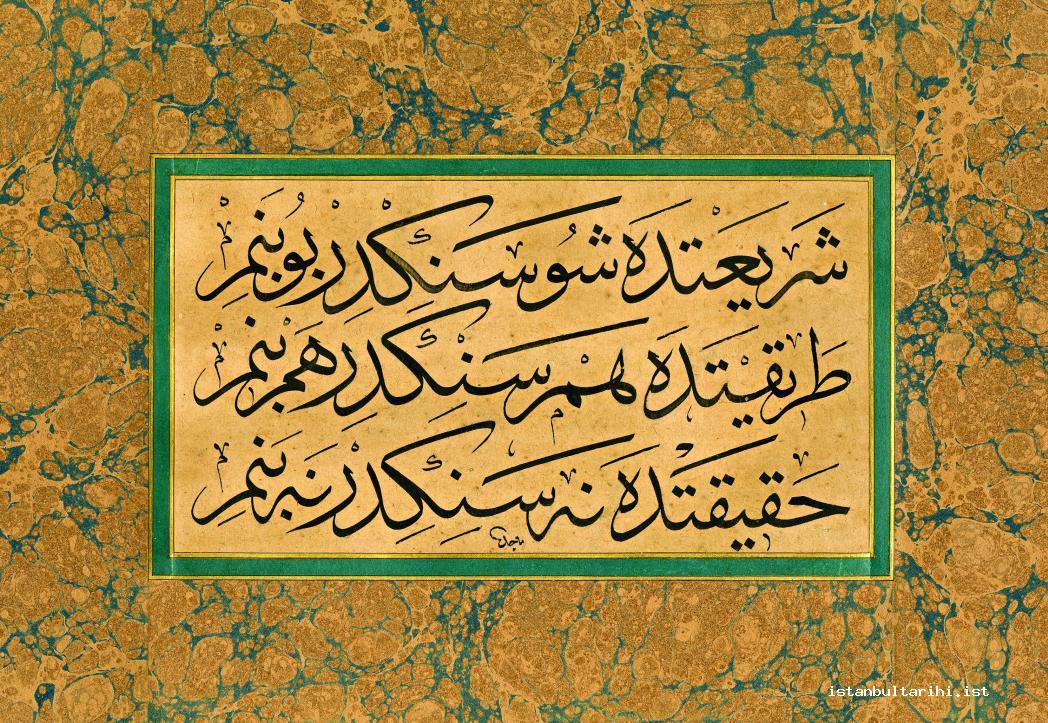 شريعتده شو سنكدر بو بنم
طريقتده هم سنكدر هم بنم
حقيقتده نه سنكدر نه بنم
istanbultarihi.ist